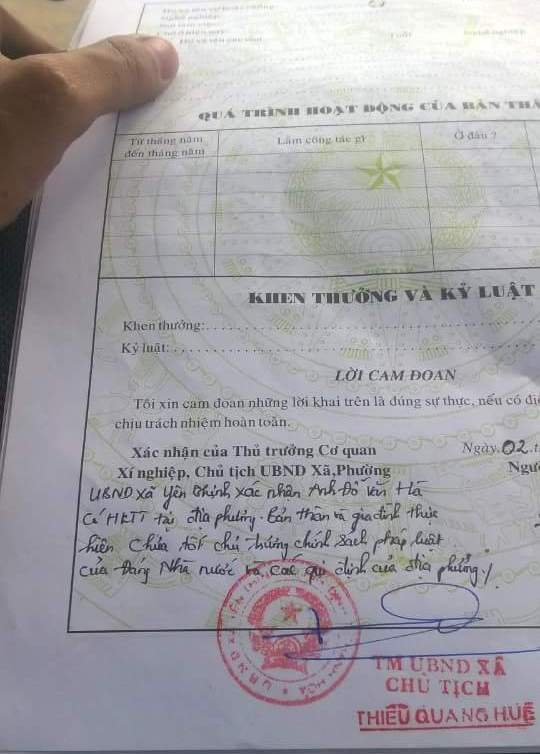 Họ và tên vợ hoặc chồng
Nghề nghiệp
Nơi làm việc
Chỗ ở hiện nay
Họ và tên các con Tuổi Nghề nghiệp
QUÁ TRÌNH HOẠT ĐỘNG CỦA BẢN THÂ
Từ tháng năm đến tháng năm Làm công tác gì Ở đâu ?
KHEN THƯỞNG VÀ KỶ LUẬT
Khen thưởng:
Kỷ luật:
LỜI CAM ĐOAN
Tôi xin cam đoan những lời khai trên là đúng sự thực, nếu có đi
chịu trách nhiệm hoàn toàn.
Xác nhận của Thủ trưởng Cơ quan Ngày.02.t
Xí nghiệp, Chủ tịch UBND Xã,Phường Ngư
UBND xã Yên Chính xác nhận Anh Đỗ Văn Hà
Có HKTT tại địa phương. Bản thân và gia đình thực
hiện Chưa tốt chủ trương chính sách pháp luật
của Đảng Nhà nước và các qui định của địa phương./
TM UBND XÃ
CHỦ TỊCH
THIỀU QUANG HUẾ